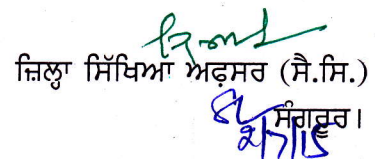 ਜ਼ਿਲ੍ਹਾ ਸਿੱਖਿਆ ਅਫ਼ਸਰ (ਸੈ.ਸਿ.)
ਸੰਗਰੂਰ।
2/7/15